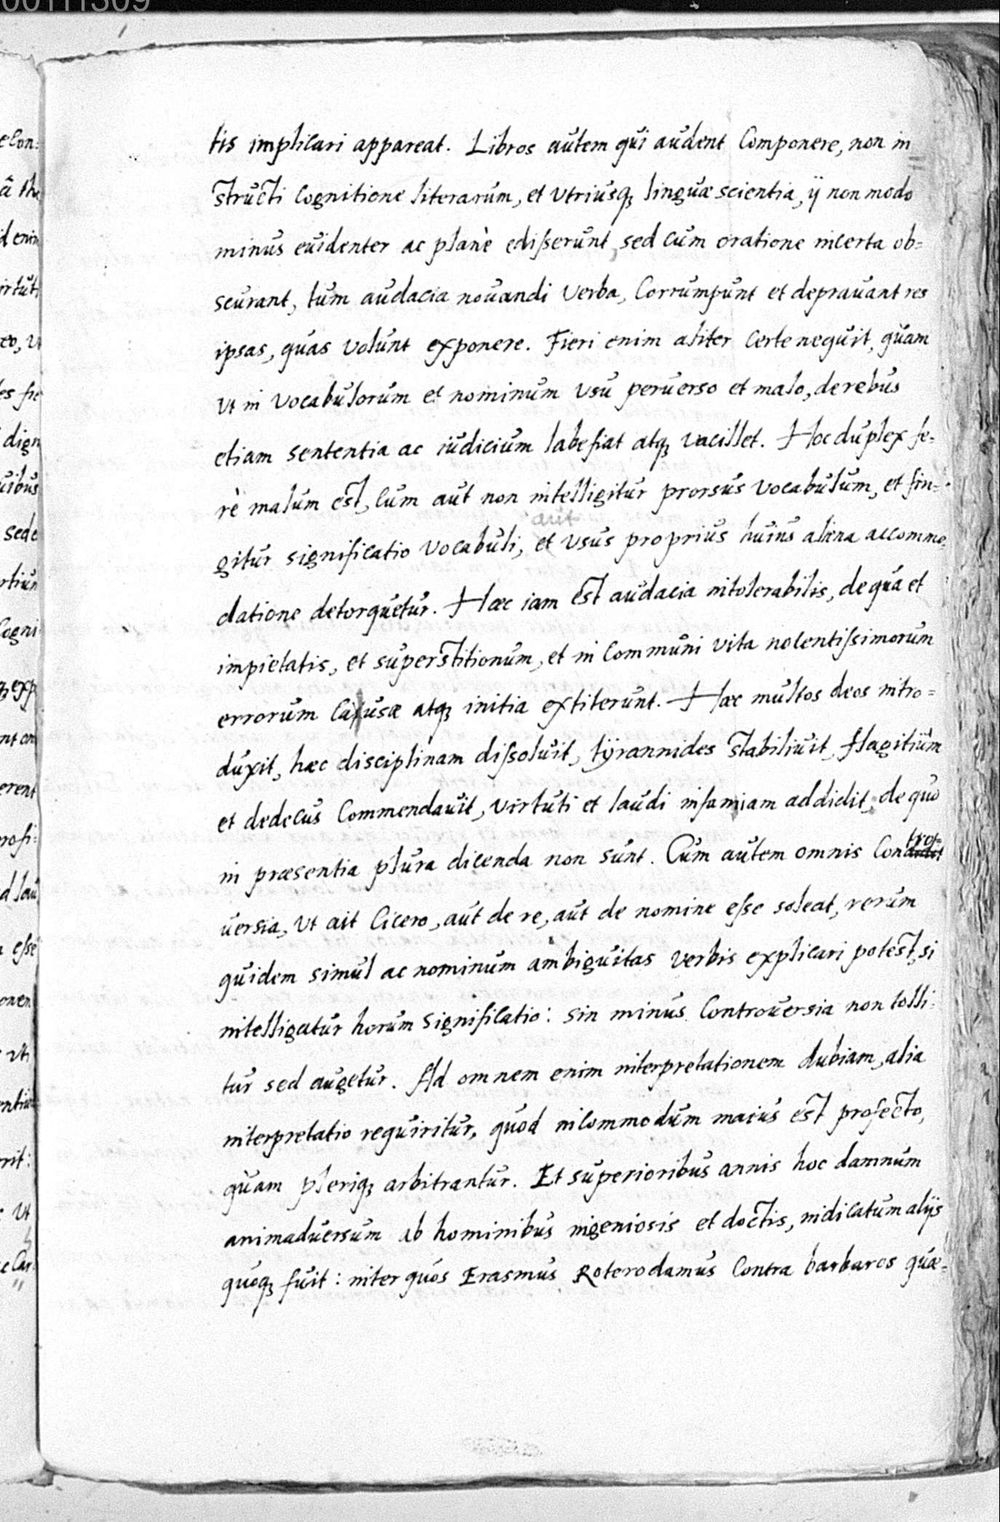 00111309
tis implicari appareat. Libros autem qui audent Componere, non in
structi Cognitione literarum, et utriusq; linguæ scientia, ij non modo
minus euidenter ac planè edisserunt, sed cum oratione incerta ob=
scurant, tum audacia nouandi verba, Corrumpunt et deprauant res
ipsas, quas volunt exponere. Fieri enim aliter certe nequit, quam
Ut in vocabulorum et nominum usu peruerso et malo, de rebus
etiam sententia ac iudicium labefiat atq; vacillet. Hoc duplex fe=
rè malum est, Cum aut non intelligitur prorsus vocabulum, et fin=
aut
gitur significatio vocabuli, et usus proprius huius aliena accommo
datione detorquetur. Hæc iam est audacia intolerabilis, de qua et
impietatis, et superstitionum, et in Communi vita nolentissimorum
errorum causæ atq; initia extiterunt. Hæc multos deos intro=
duxit, hæc disciplinam dissoluit, tyrannides stabiliuit, flagitium
et dedecus Commendauit, virtuti et laudi infamiam addidit, de quo
in præsentia plura dicenda non sunt. Cum autem omnis Con
tro=
uersia, ut ait Cicero, aut de re, aut de nomine esse soleat, rerum
quidem simul ac nominum ambiguitas verbis explicari potest, si
intelligatur horum significatio: sin minus Controuersia non tolli=
tur sed augetur. Ad omnem enim interpretationem dubiam, alia
interpretatio requiritur, quod incommodum maius est profecto,
quam pleriq; arbitrantur. Et superioribus annis hoc damnum
animaduersum ab hominibus ingeniosis et doctis, indicatum alijs
quoq; fuit: inter quos Erasmus Roterodamus Contra barbaros quæ=